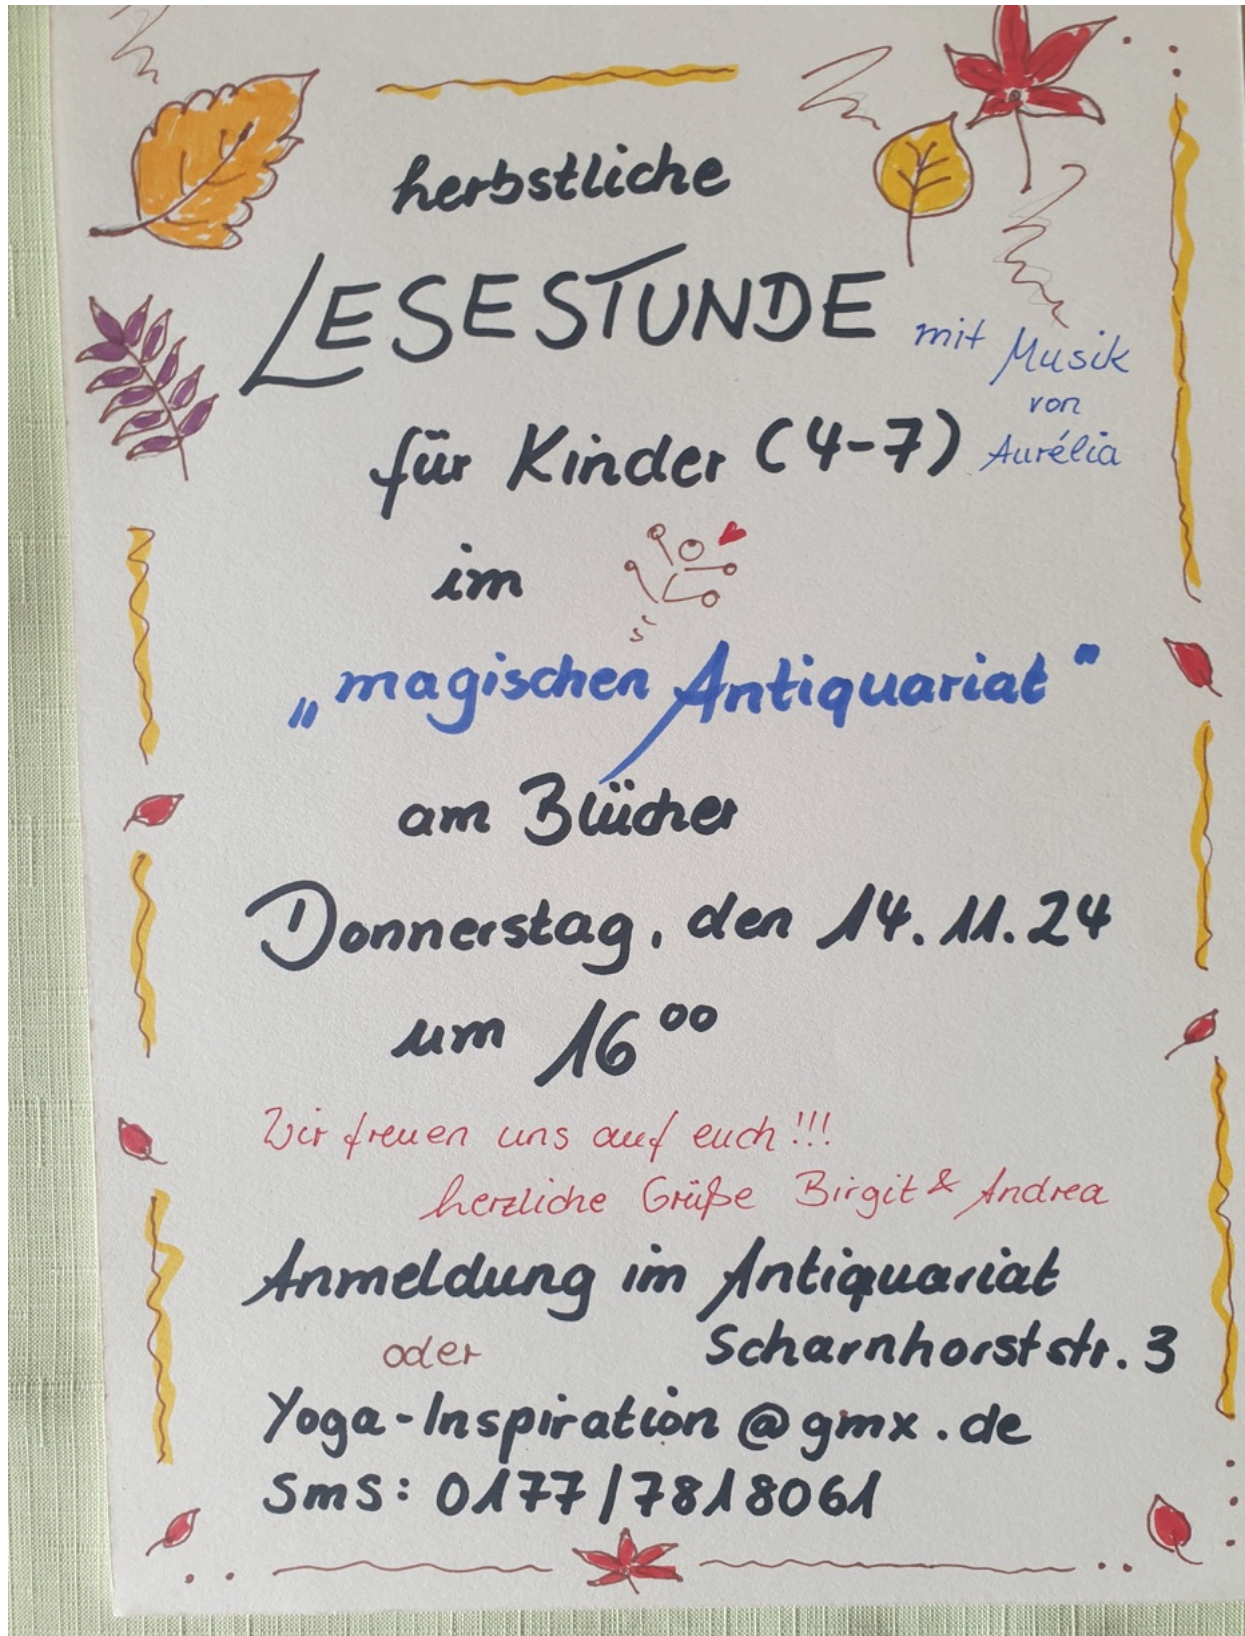 herbstliche
LESESTUNDE
mit Musik
von
Aurélia
für Kinder (4-7)
im
„magischen Antiquariat“
am Blücher
Donnerstag, den 14.11.24
um 16 00
Wir freuen uns auf euch!!!
herzliche Grüße Birgit & Andrea
Anmeldung im Antiquariat
oder Scharnhorststr. 3
Yoga-Inspiration@gmx.de
SMS: 0177/7818061